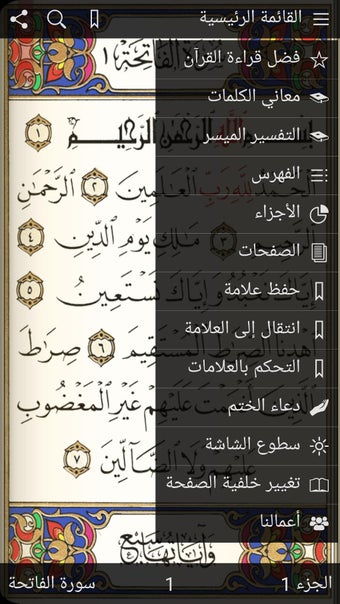 القائمة الرئيسية
فضل قراءة القرآن
معاني الكلمات
التفسير الميسر
الفهرس
الأجزاء
الصفحات
حفظ علامة
انتقال إلى العلامة
التحكم بالعلامات
دعاء الختم
سطوع الشاشة
تغيير خلفية الصفحة
أعمالنا
سورة الفاتحة ١
بسم الله الرحمن الرحيم ١
الحمد لله رب العلمين ٢ الرحمن
الرحيم ٣ ملك يوم الدين ٤
إياك نعبد وإياك نستعين ٥
اهدنا الصراط المستقيم ٦ صراط
الذين أنعمت عليهم غير المغضوب
عليهم ولا الضالين ٧
وآياتها سبع
الجزء 1
1
سورة الفاتحة